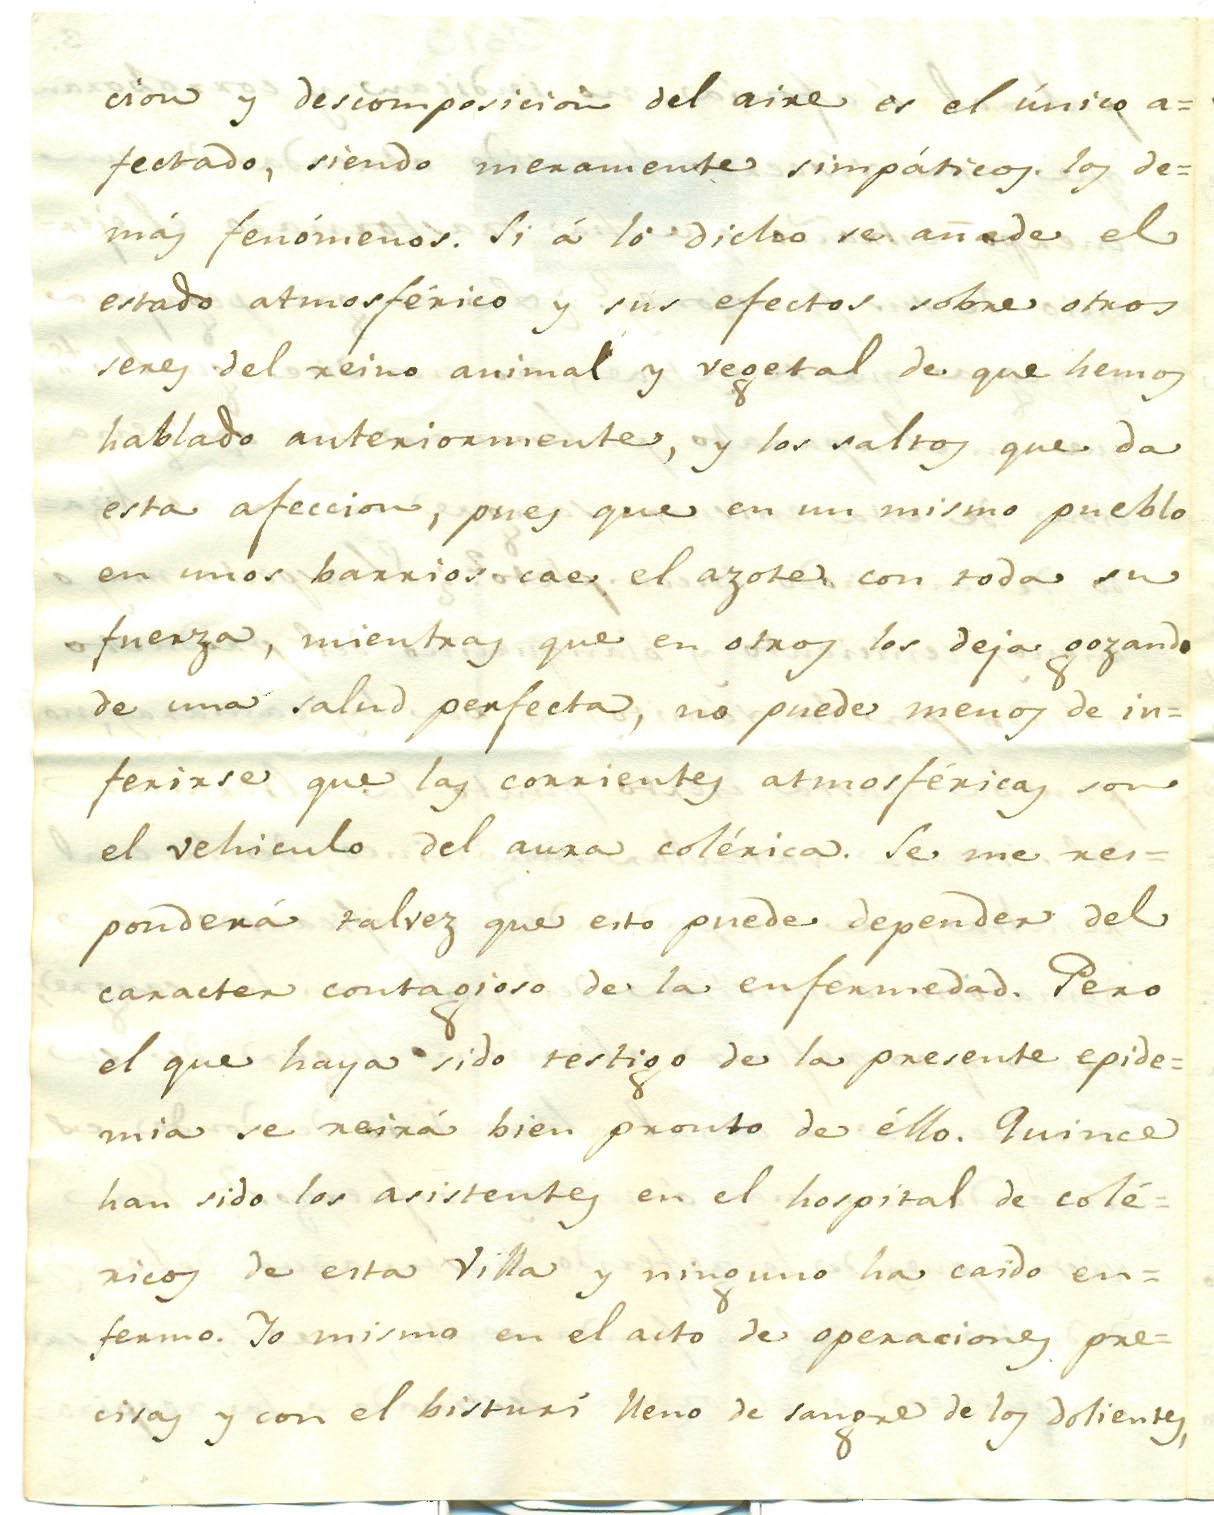 cion y descomposicion del aire es el único a=
fectado, siendo meramente simpáticos los de=
más fenómenos. Si á lo dicho se añade el
estado atmosférico y sus efectos sobre otros
seres del reino animal y vegetal de que hemos
hablado anteriormente, y los saltos que da
esta afeccion, pues que en un mismo pueblo
en unos barrios cae el azote con toda su
fuerza, mientras que en otros los deja gozando
de una salud perfecta, no puede menos de in=
ferirse que las corrientes atmosféricas son
el vehiculo del aura colérica. Se me res=
ponderá talvez que esto puede depender del
caracter contagioso de la enfermedad. Pero
el que haya sido testigo de la presente epide=
mia se reirá bien pronto de éllo. Quince
han sido los asistentes en el hospital de colé=
ricos de esta Villa y ninguno ha caido en=
fermo. Yo mismo en el acto de operaciones pre=
cisas y con el bisturí lleno de sangre de los dolientes,